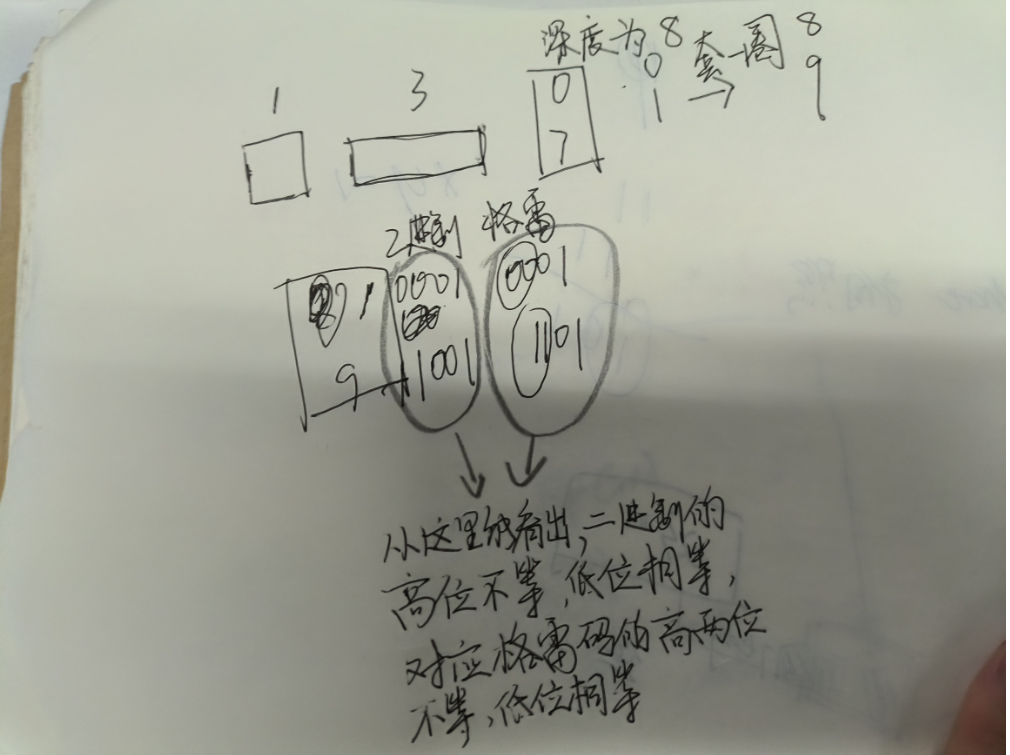 深度为8
0 套一圈 8
1 → 9
1 3 0
7
2进制 格雷
1 0001 0001
9 1001 1101
从这里能看出,二进制的
高位不等,低位相等,
对应格雷码的高两位
不等,低位相等